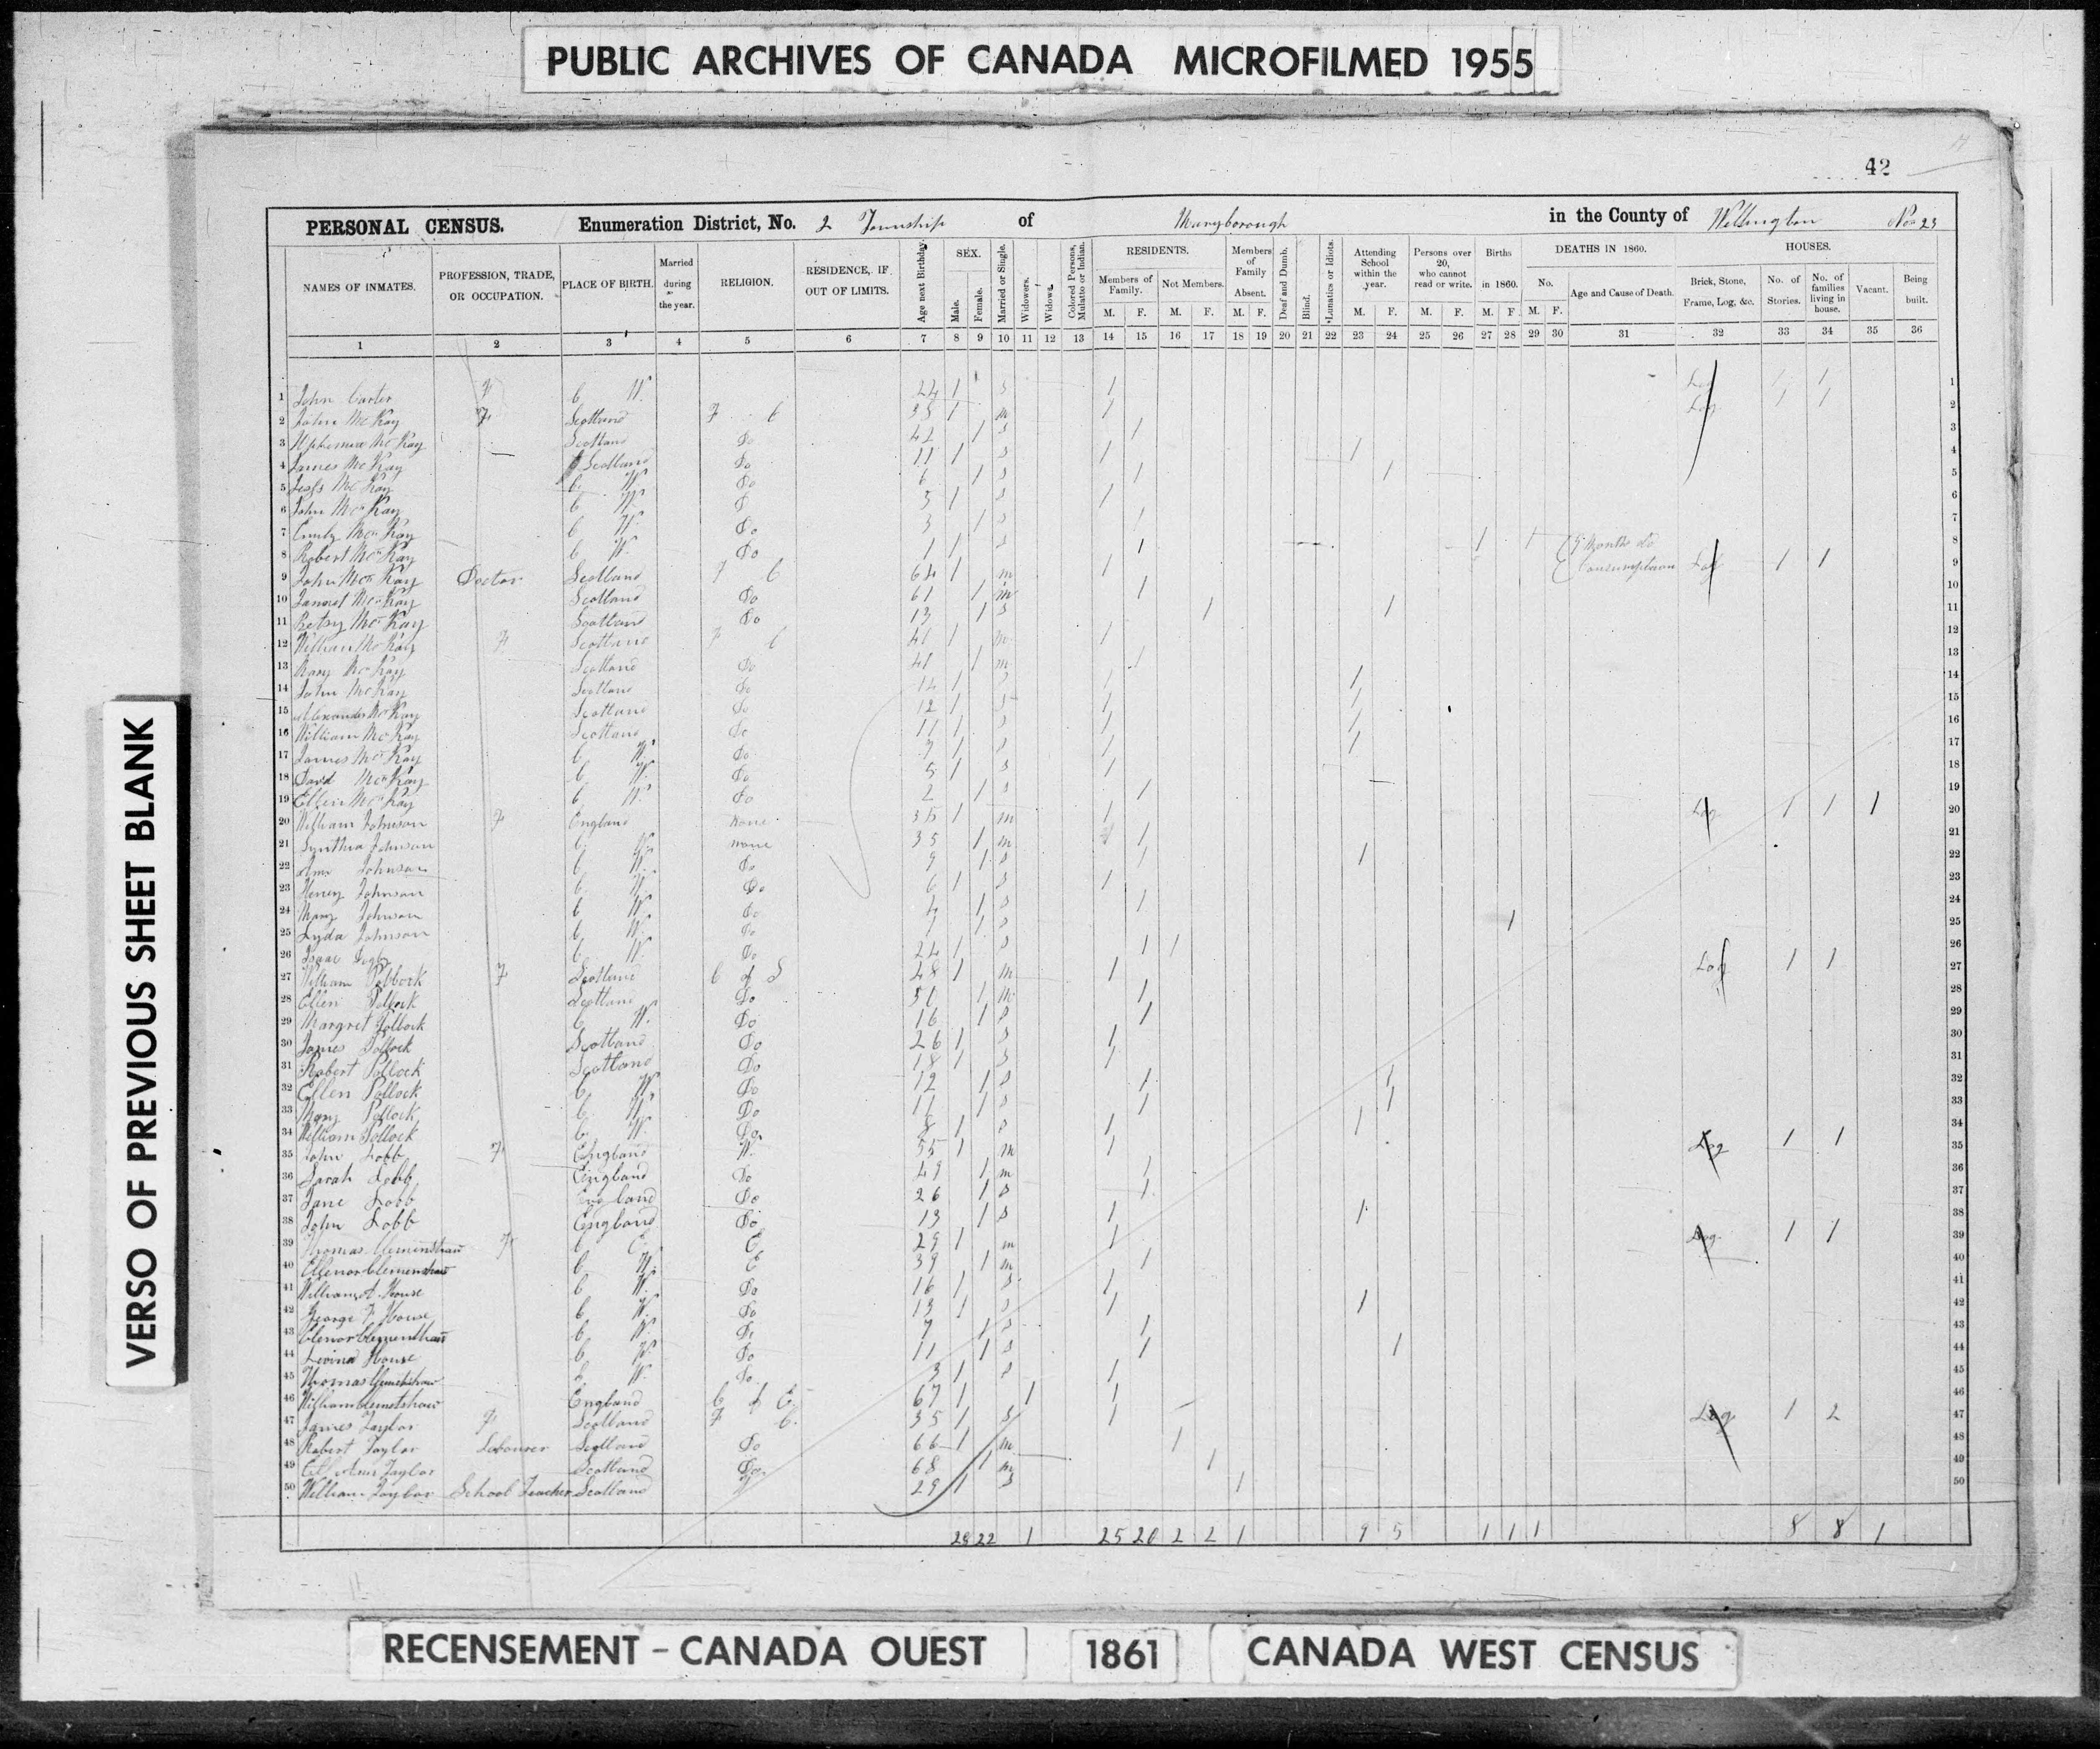 PUBLIC ARCHIVES OF CANADA MICROFILMED 1955
42
PERSONAL CENSUS. Enumeration District, No. 2 Township of Maryborough in the County of Wellington No 23
NAMES OF INMATES. PROFESSION, TRADE, OR OCCUPATION. PLACE OF BIRTH. Married during the year. RELIGION. RESIDENCE, IF OUT OF LIMITS. Age next Birthday. SEX. Male. Female. Married or Single. Widowers. Widows. Colored Persons, Mulatto or Indian. RESIDENTS. Members of Family. M. F. Not Members. M. F. Members of Family Absent. M. F. Deaf and Dumb. Blind. *Lunatics or Idiots. Attending School within the year. M. F. Persons over 20, who cannot read or write. M. F. Births in 1860. M. F. DEATHS IN 1860. No. M. F. Age and Cause of Death. HOUSES. Brick, Stone, Frame, Log, &c. No. of Stories. No. of families living in house. Vacant. Being built.
1 2 3 4 5 6 7 8 9 10 11 12 13 14 15 16 17 18 19 20 21 22 23 24 25 26 27 28 29 30 31 32 33 34 35 36
1 John Carter F C W. 24 1 S 1 Log 1 1 1
2 John McKay F Scotland F C 35 1 m 1 Log 1 1 2
3 McKay Scotland Do 42 1 S 1 3
4 James McKay Scotland Do 11 1 S 1 1 4
5 Jess McKay C W. Do 6 1 S 1 1 5
6 John McKay C W. D 5 1 S 1 6
7 Emily McKay C W. Do 3 1 S 1 7
8 Robert McKay C W. Do 1 1 S 1 1 1 9 Month old Consumption 8
9 John McKay Doctor Scotland F C 64 1 m 1 Log 1 1 9
10 Jannet McKay Scotland Do 61 1 m 1 10
11 Betsy McKay Scotland Do 13 1 S 1 1 11
12 William McKay F Scotland F C 41 1 m 1 12
13 Mary McKay Scotland Do 41 1 m 1 13
14 John McKay Scotland Do 14 1 S 1 1 14
15 Alexander McKay Scotland Do 12 1 S 1 1 15
16 William McKay Scotland Do 11 1 S 1 1 16
17 James McKay C W. Do 7 1 S 1 1 17
18 David McKay C W. Do 5 1 S 1 18
19 Ellen McKay C W. Do 2 1 S 1 19
20 William Johnson F England none 35 1 m 1 Log 1 1 1 20
21 Synthia Johnson C W. none 35 1 m 1 21
22 Ann Johnson C W. Do 9 1 S 1 1 22
23 Henry Johnson C W. Do 6 1 S 1 23
24 Mary Johnson C W. Do 4 1 S 1 24
25 Lyda Johnson C W. Do 1 1 S 1 25
26 Isaac C W. Do 24 1 S 1 1 26
27 William Pollock F Scotland C of S 48 1 m 1 Log 1 1 27
28 Ellen Pollock Scotland Do 51 1 m 1 28
29 Margret Pollock C W. Do 16 1 S 1 29
30 James Pollock Scotland Do 26 1 S 1 30
31 Robert Pollock Scotland Do 18 1 S 1 31
32 Ellen Pollock C W. Do 12 1 S 1 1 32
33 Mary Pollock C W. Do 11 1 S 1 1 33
34 William Pollock C W. Do 8 1 S 1 1 34
35 John Lobb F England W. 55 1 m 1 Log 1 1 35
36 Sarah Lobb England Do 49 1 m 1 36
37 Jane Lobb England Do 26 1 S 1 37
38 John Lobb England Do 13 1 S 1 1 38
39 Thomas Clementshaw F C E. E 29 1 m 1 Log 1 1 39
40 Ellenor Clementshaw C W. E 39 1 m 1 40
41 William A House C W. Do 16 1 S 1 41
42 George F House C W. Do 13 1 S 1 1 42
43 Elenor Clementshaw C W. Do 7 1 S 1 43
44 Lovina House C W. Do 11 1 S 1 1 44
45 Thomas Clementshaw C W. Do 3 1 S 1 45
46 William Clemetshaw England C of E. 67 1 1 1 46
47 James Taylor F Scotland F C. 35 1 S 1 Log 1 2 47
48 Robert Taylor Labourer Scotland Do 66 1 m 1 48
49 Ann Taylor Scotland Do 68 1 m 1 49
50 William Taylor School Teacher Scotland 29 1 S 1 50
28 22 1 25 20 2 2 1 9 5 1 1 1 8 8 1
VERSO OF PREVIOUS SHEET BLANK
RECENSEMENT - CANADA OUEST 1861 CANADA WEST CENSUS